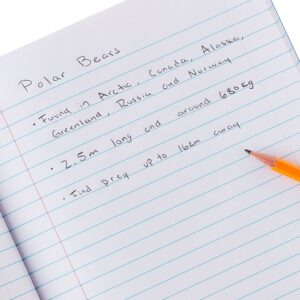 Polar Bears
• Found in Arctic, Canada, Alaska,
Greenland, Russia and Norway
• 2.5m long and around 680kg
• Find prey up to 16km away